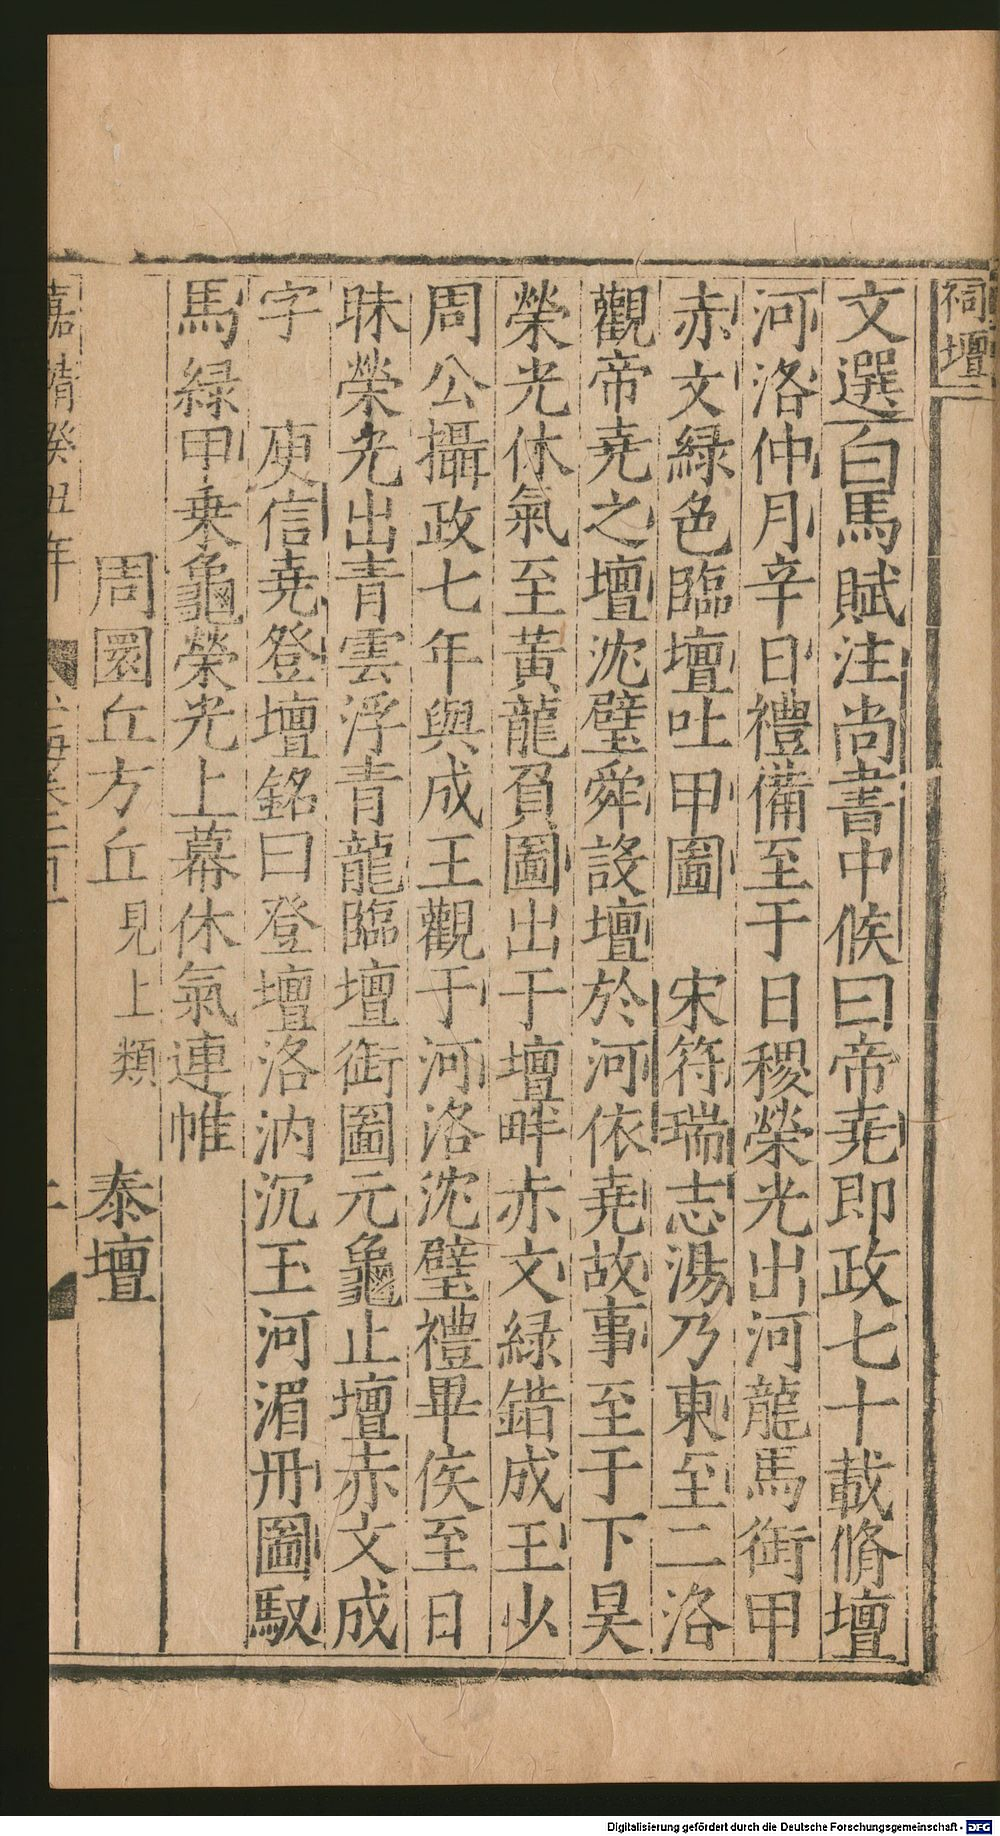 祠壇
文選白馬賦注尚書中候曰帝堯即政七十載脩壇
河洛仲月辛日禮備至于日稷榮光出河龍馬銜甲
赤文綠色臨壇吐甲圖　宋符瑞志湯乃東至二洛
觀帝堯之壇沈璧舜設壇於河依堯故事至于下昊
榮光休氣至黃龍負圖出于壇畔赤文綠錯成王少
周公攝政七年與成王觀于河洛沈璧禮畢俟至日
昧榮光出青雲浮青龍臨壇銜圖元龜止壇赤文成
字　庾信堯登壇銘曰登壇洛汭沉玉河湄冊圖馭
馬綠甲乘龜榮光上幕休氣連帷
周圜丘方丘見上類　泰壇
嘉靖癸丑年
Digitalisierung gefördert durch die Deutsche Forschungsgemeinschaft - DFG